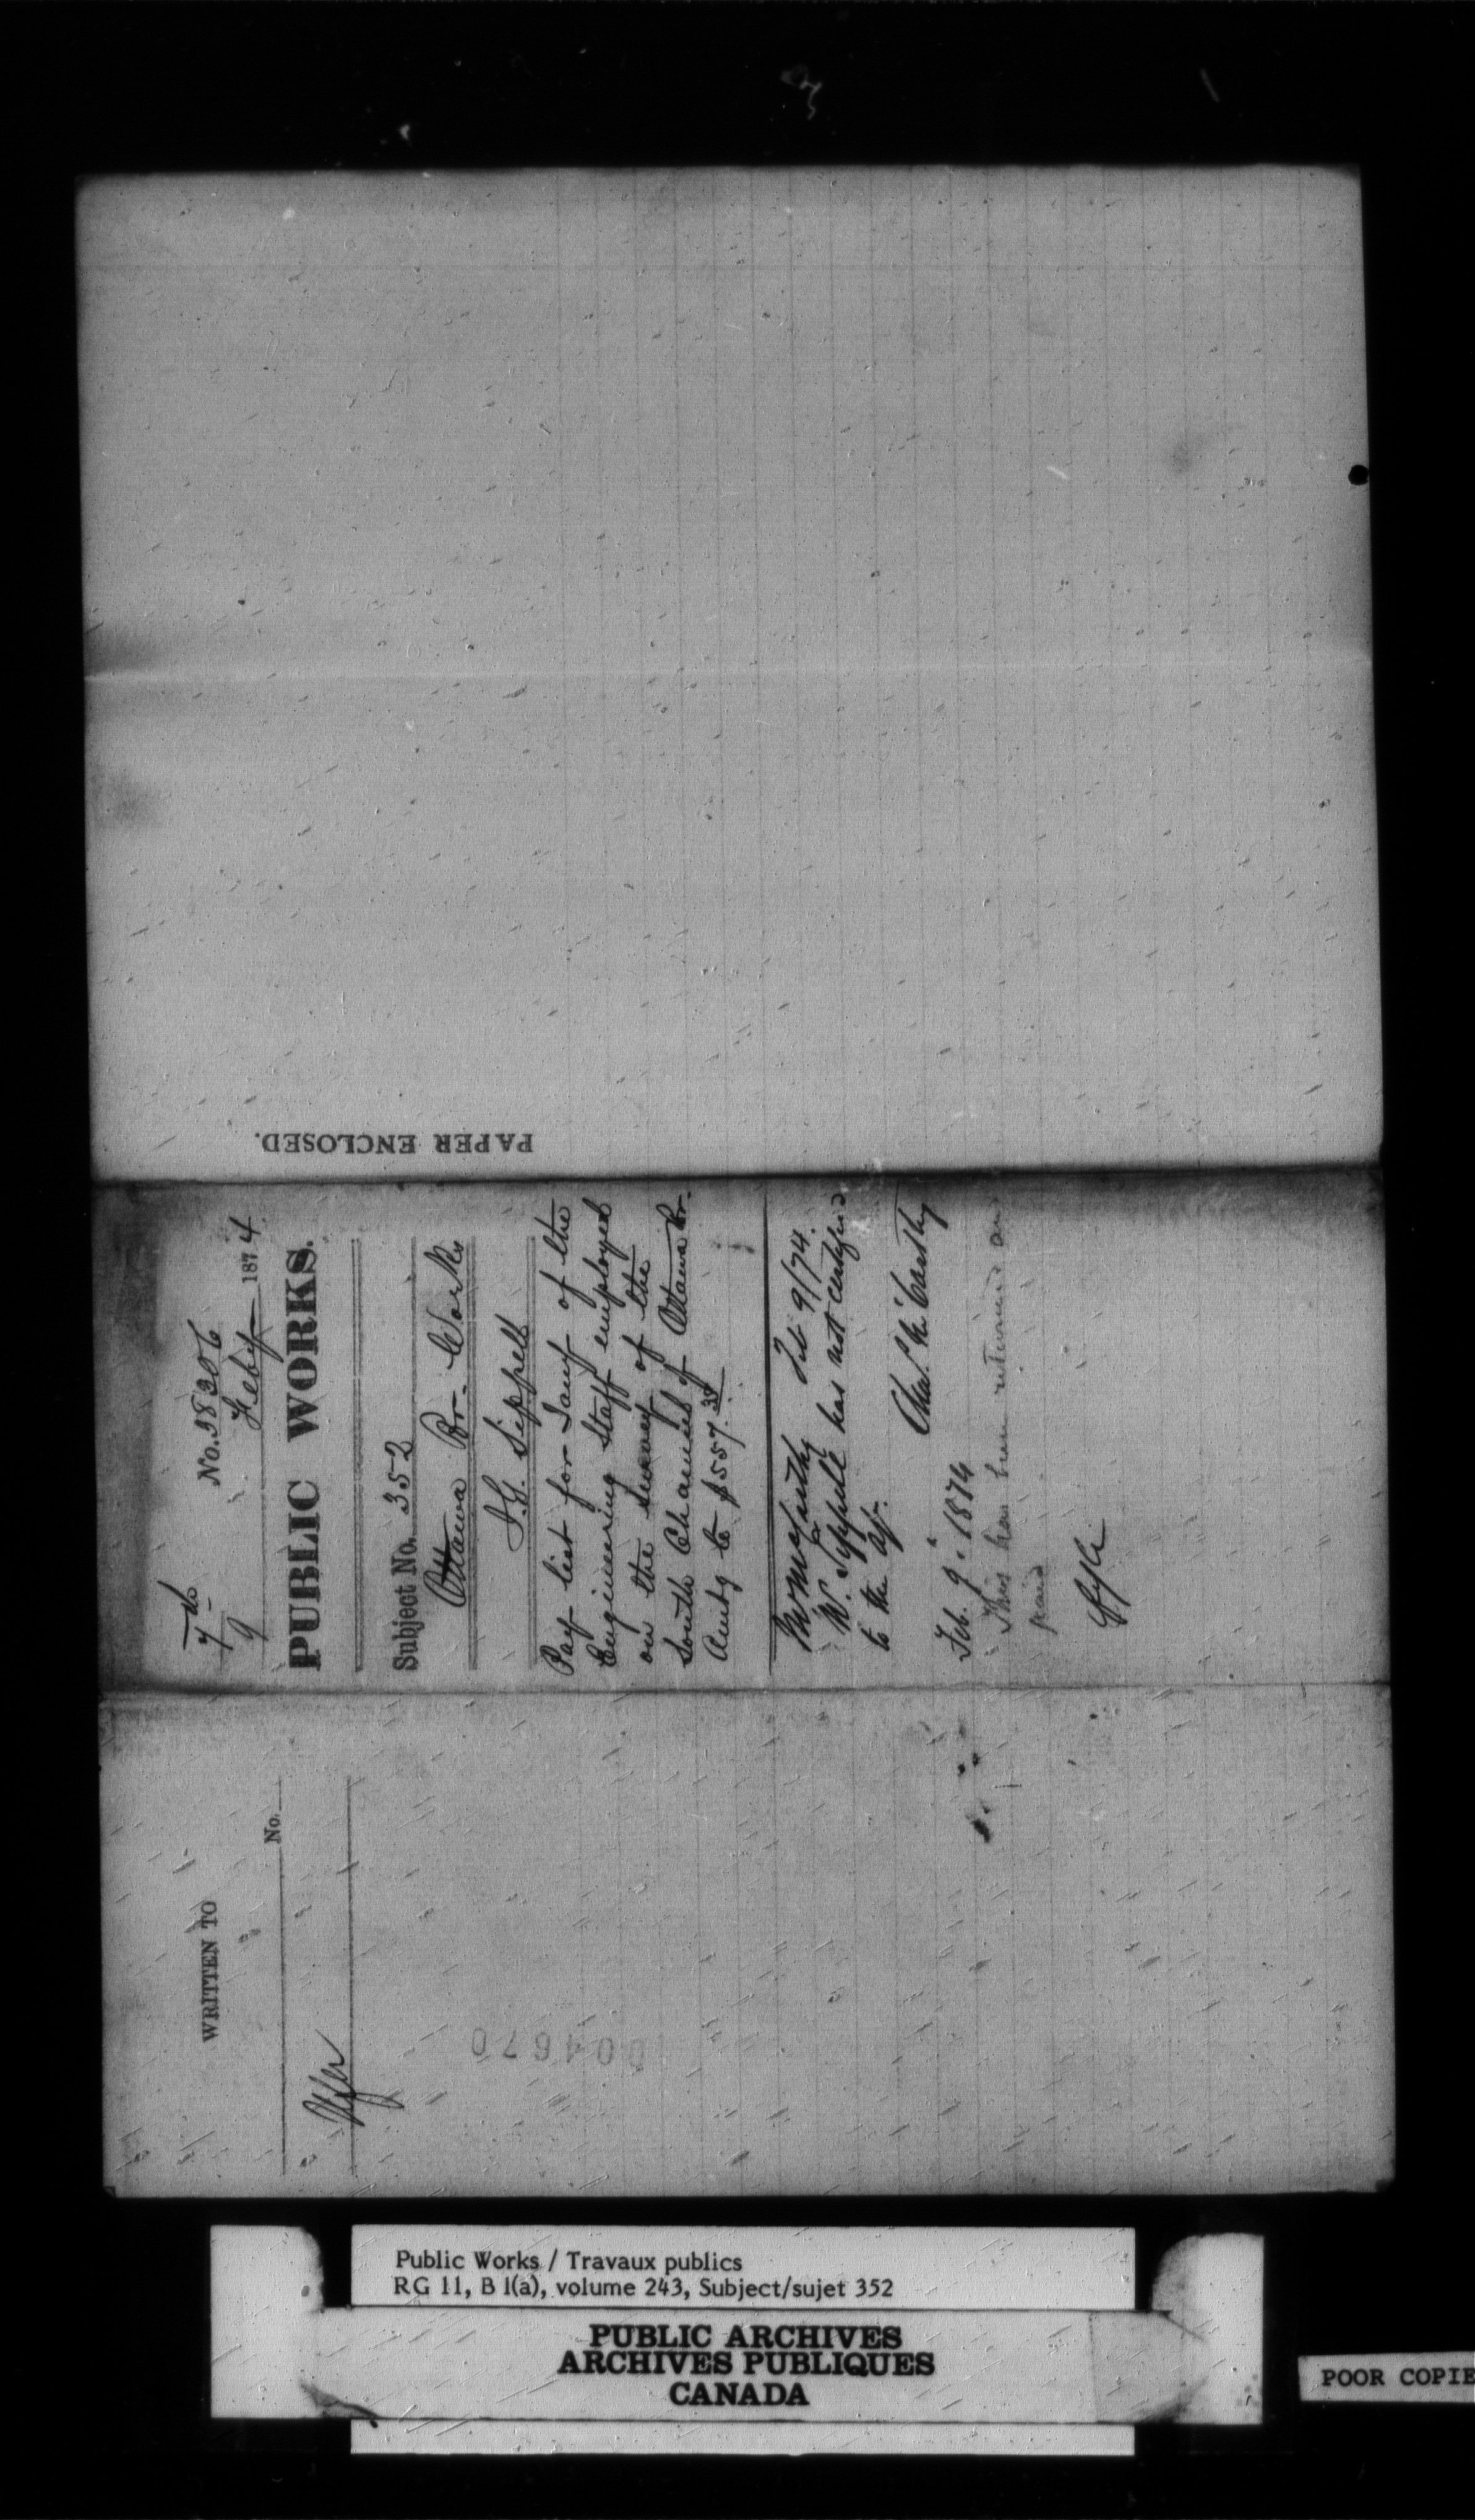 7
9
No. 38306
Feby 1874
PUBLIC WORKS.
Subject No. 352
Ottawa Br. Works
J.G. Sippell
Pay list for Jany of the
Engineering Staff employed
on the survey of the
South Channel of Ottawa Br.
Amtg to $557.38
Feb 9/74.
Mr. Sippell has not certified
to the
Chas. McCarthy
Feb. 9. 1874
This has been returned and
paid
PAPER ENCLOSED.
WRITTEN TO
No.
004670
Public Works / Travaux publics
RG 11, B 1(a), volume 243, Subject/sujet 352
PUBLIC ARCHIVES
ARCHIVES PUBLIQUES
CANADA
POOR COPIE